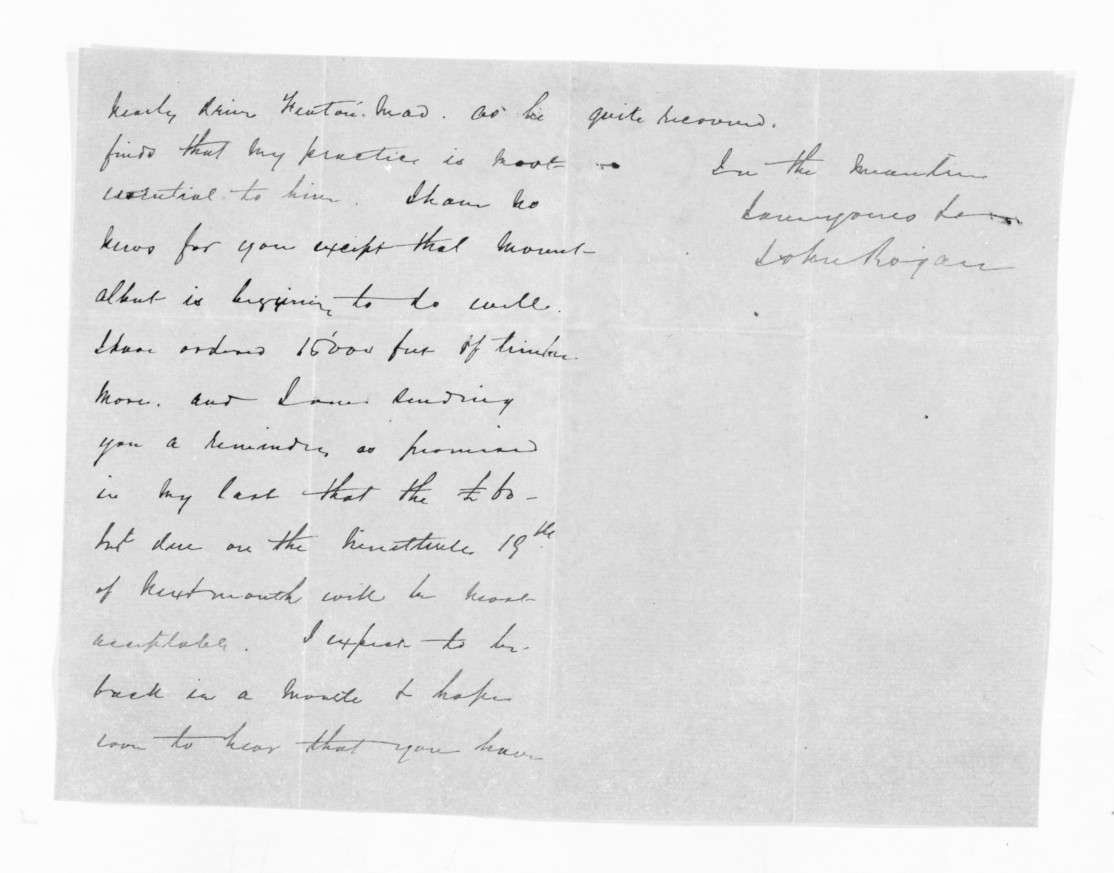 nearly drive Fenton mad. as he
finds that my practice is most
essential to him. I have no
news for you except that Mount-
albert is beginning to do well.
I have ordered 15000 feet of timber
more. and I am sending
you a reminder, as promised
in my last that the £60-
but due on the 19th
of next month will be most
acceptable. I expect to be
back in a month & hope
soon to hear that you have
quite recovered.
In the meantime
I am yours &c
John Rogan